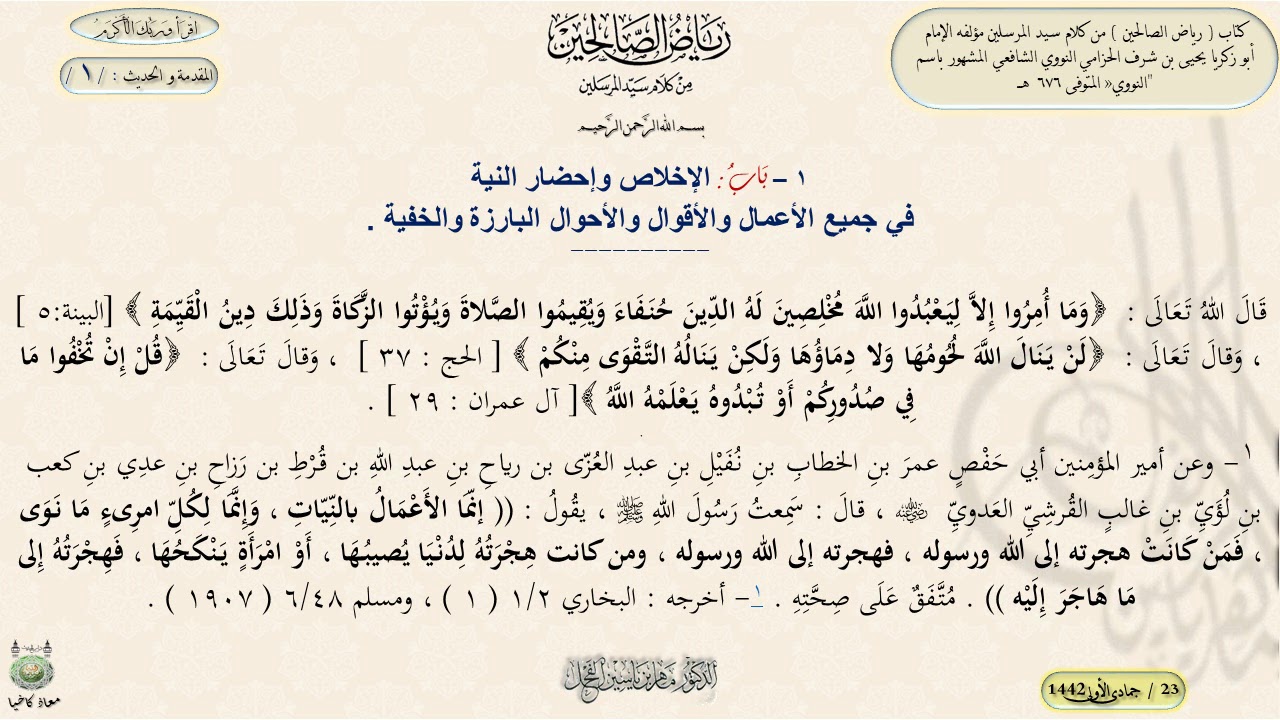 كتاب ( رياض الصالحين ) من كلام سيد المرسلين مؤلفه الإمام
أبو زكريا يحيى بن شرف الحزامي النووي الشافعي المشهور باسم
"النووي« المتوفى ٦٧٦ هـ
رياض الصالحين
من كلام سيد المرسلين
بسم الله الرحمن الرحيم
اقرأ وربك الأكرم
المقدمة و الحديث : / ١ /
١ – بَابُ : الإخلاص وإحضار النية
في جميع الأعمال والأقوال والأحوال البارزة والخفية .
----------
قَالَ اللهُ تَعَالَى : ﴿وَمَا أُمِرُوا إِلاَّ لِيَعْبُدُوا اللَّهَ مُخْلِصِينَ لَهُ الدِّينَ حُنَفَاءَ وَيُقِيمُوا الصَّلاةَ وَيُؤْتُوا الزَّكَاةَ وَذَلِكَ دِينُ الْقَيِّمَةِ ﴾ [البينة:٥ ]
، وَقالَ تَعَالَى : ﴿لَنْ يَنَالَ اللَّهَ لُحُومُهَا وَلا دِمَاؤُهَا وَلَكِنْ يَنَالُهُ التَّقْوَى مِنْكُمْ ﴾ [ الحج : ٣٧ ] ، وَقالَ تَعَالَى : ﴿قُلْ إِنْ تُخْفُوا مَا
فِي صُدُورِكُمْ أَوْ تُبْدُوهُ يَعْلَمْهُ اللَّهُ ﴾[ آل عمران : ٢٩ ] .
١– وعن أمير المؤمِنين أبي حَفْصٍ عمرَ بنِ الخطابِ بنِ نُفَيْلِ بنِ عبدِ العُزّى بن رياحِ بنِ عبدِ اللهِ بن قُرْطِ بن رَزاحِ بن عدِي بنِ كعب
بنِ لُؤَيِّ بنِ غالبٍ القُرشِيِّ العَدويِّ رضي الله عنه ، قالَ : سَمِعتُ رَسُولَ اللهِ ﷺ ، يقُولُ : (( إنّمَا الأَعْمَالُ بالنِّيّاتِ ، وَإِنَّمَا لِكُلِّ امرِىءٍ مَا نَوَى
، فَمَنْ كَانَتْ هجرته إلى الله ورسوله ، فهجرته إلى الله ورسوله ، ومن كانت هِجْرَتُهُ لِدُنْيَا يُصيبُهَا ، أَوْ امْرَأَةٍ يَنْكَحُهَا ، فَهِجْرَتُهُ إِلى
مَا هَاجَرَ إِلَيْه )) . مُتَّفَقٌ عَلَى صِحَّتِهِ . ١– أخرجه : البخاري ١/٢ ( ١ ) ، ومسلم ٦/٤٨ ( ١٩٠٧ ) .
الدكتور ماهر بن ياسين الفحل
معاذ كاخيا
23 / جمادى الأولى 1442